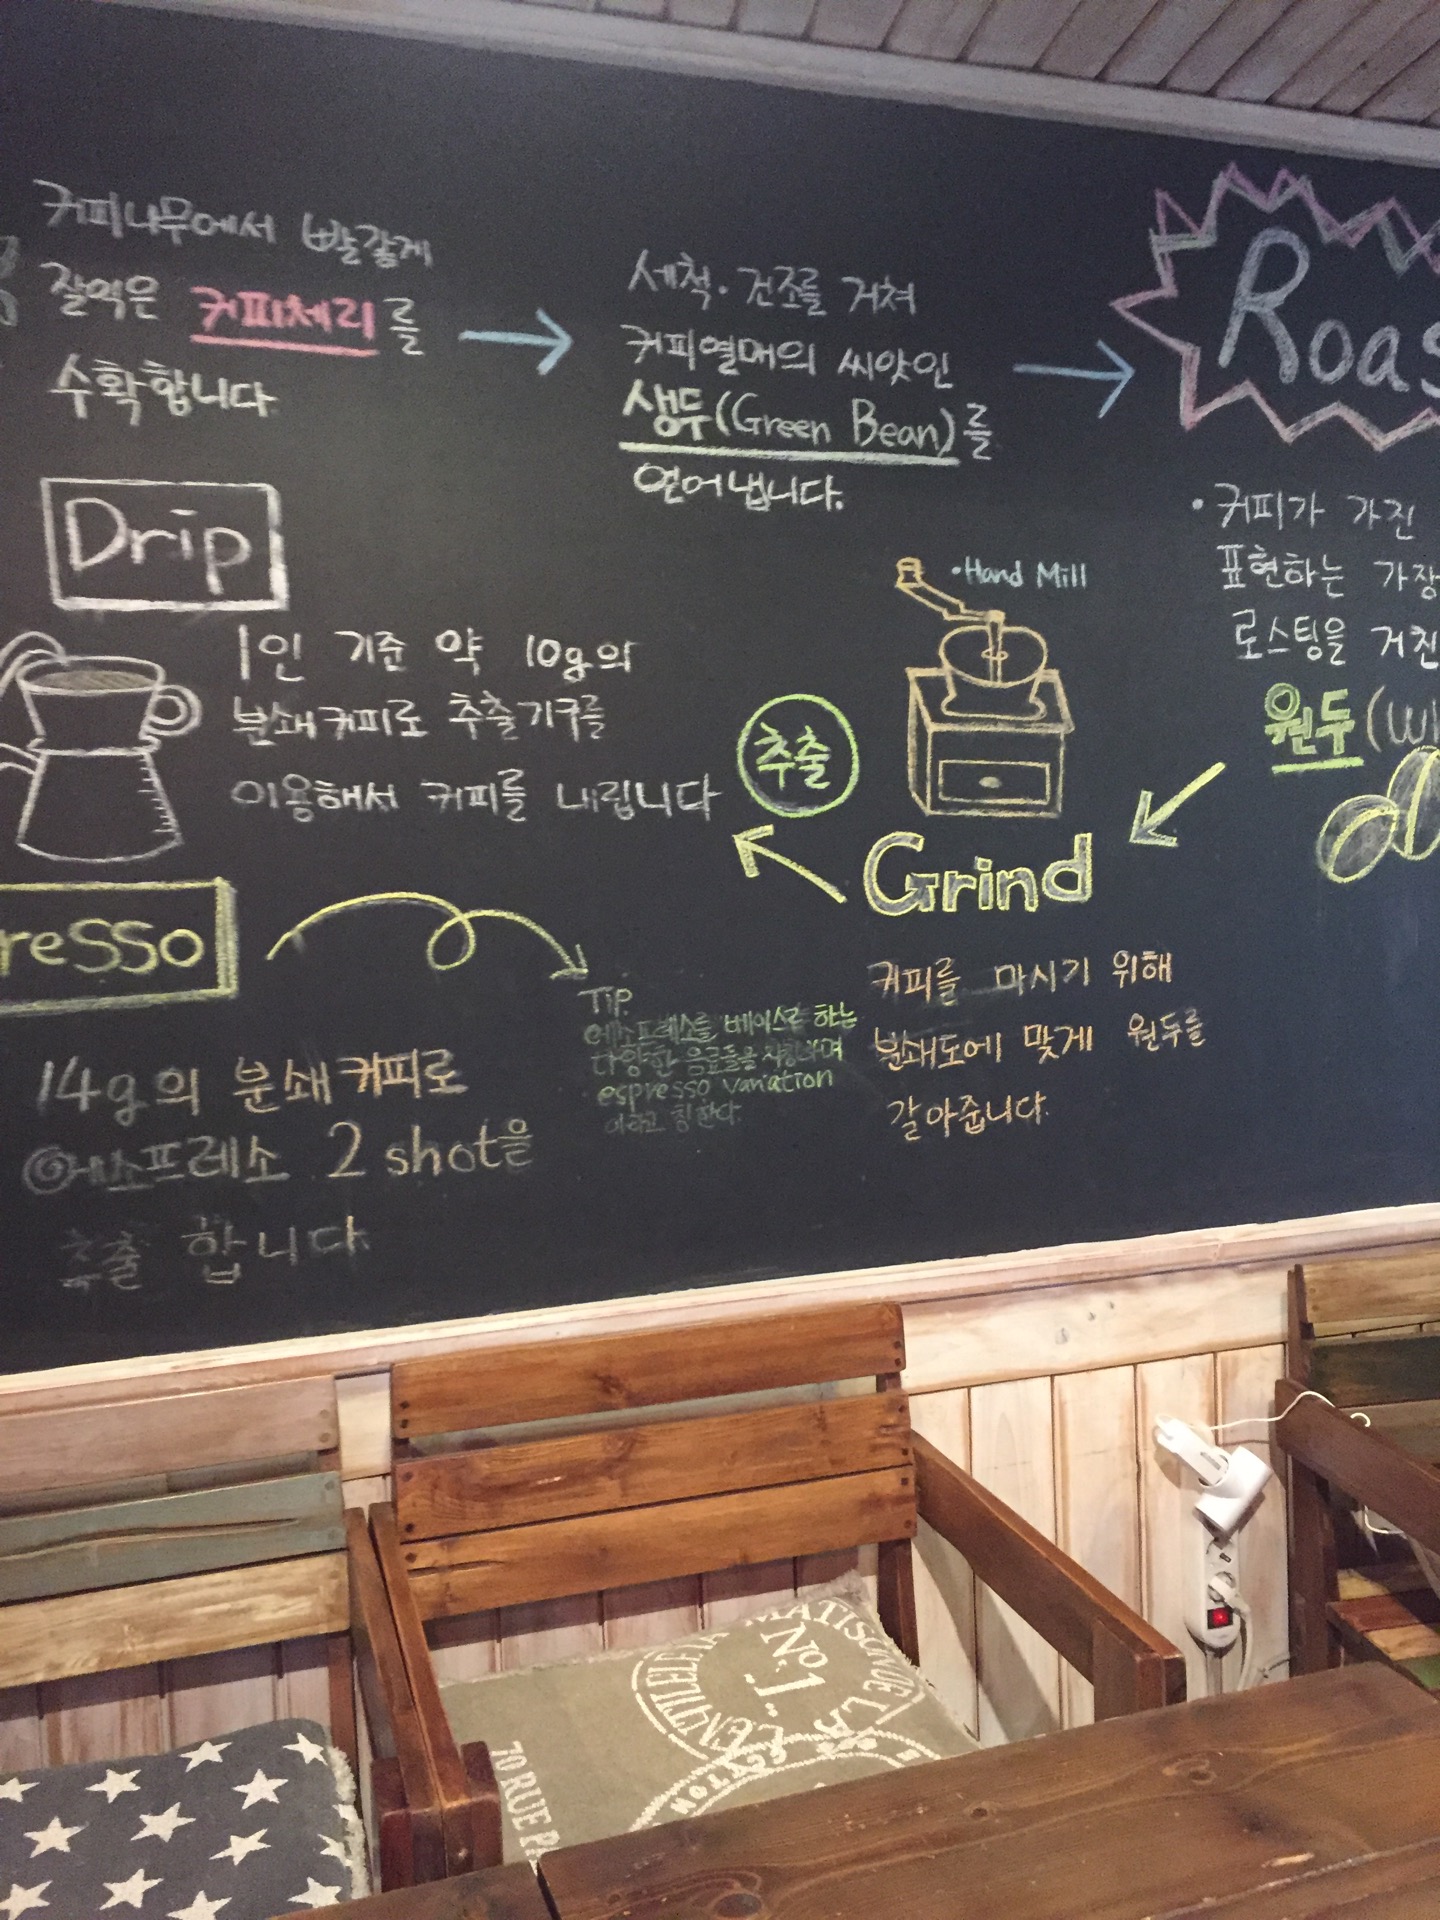 커피나무에서 빨갛게
잘익은 커피체리를
수확합니다
세척·건조를 거쳐
커피열매의 씨앗인
생두(Green Bean)를
얻어냅니다.
Roas
·커피가 가진
표현하는 가장
로스팅을 거친
원두(Wh
·Hand Mill
Grind
커피를 마시기 위해
분쇄도에 맞게 원두를
갈아줍니다.
추출
Drip
1인 기준 약 10g의
분쇄커피로 추출기구를
이용해서 커피를 내립니다
resso
14g의 분쇄커피로
에소프레소 2 shot을
추출 합니다
Tip.
에소프레소를 베이스로 하는
다양한 음료들을 지칭하며
espresso variation
이라고 칭한다.
MATISONNUE LA
No
L.1.
70 RUE PA